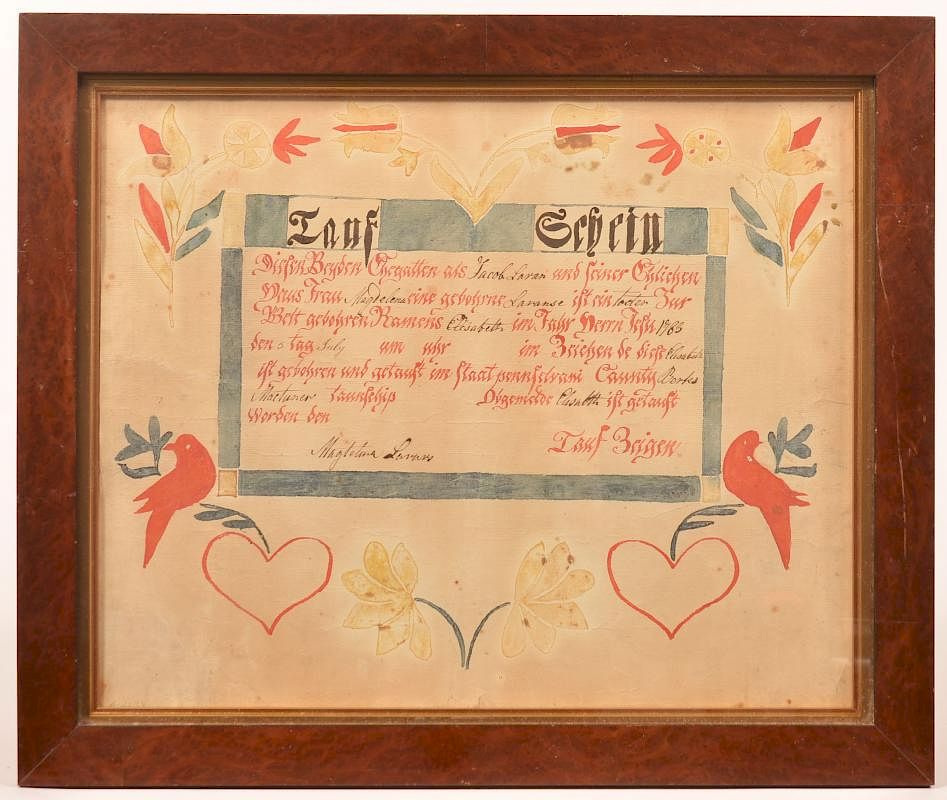 Tauf Schein
Diesen Beyden Ehegatten als Jacob Lavan und seiner Ehlichen
Haus Frau Magdelena eine gebohrne Lavanse ist ein tocter Zur
Welt gebohren Namens Elisabeth im Jahr Herrn Jesu
den tag July um uhr im Zeichen de diese Elisabeth
ist gebohren und getauft im staat pennselvani Caunty Berks
taunschip Obgemelde Elisabeth ist getauft
worden den
Tauf Zeigen